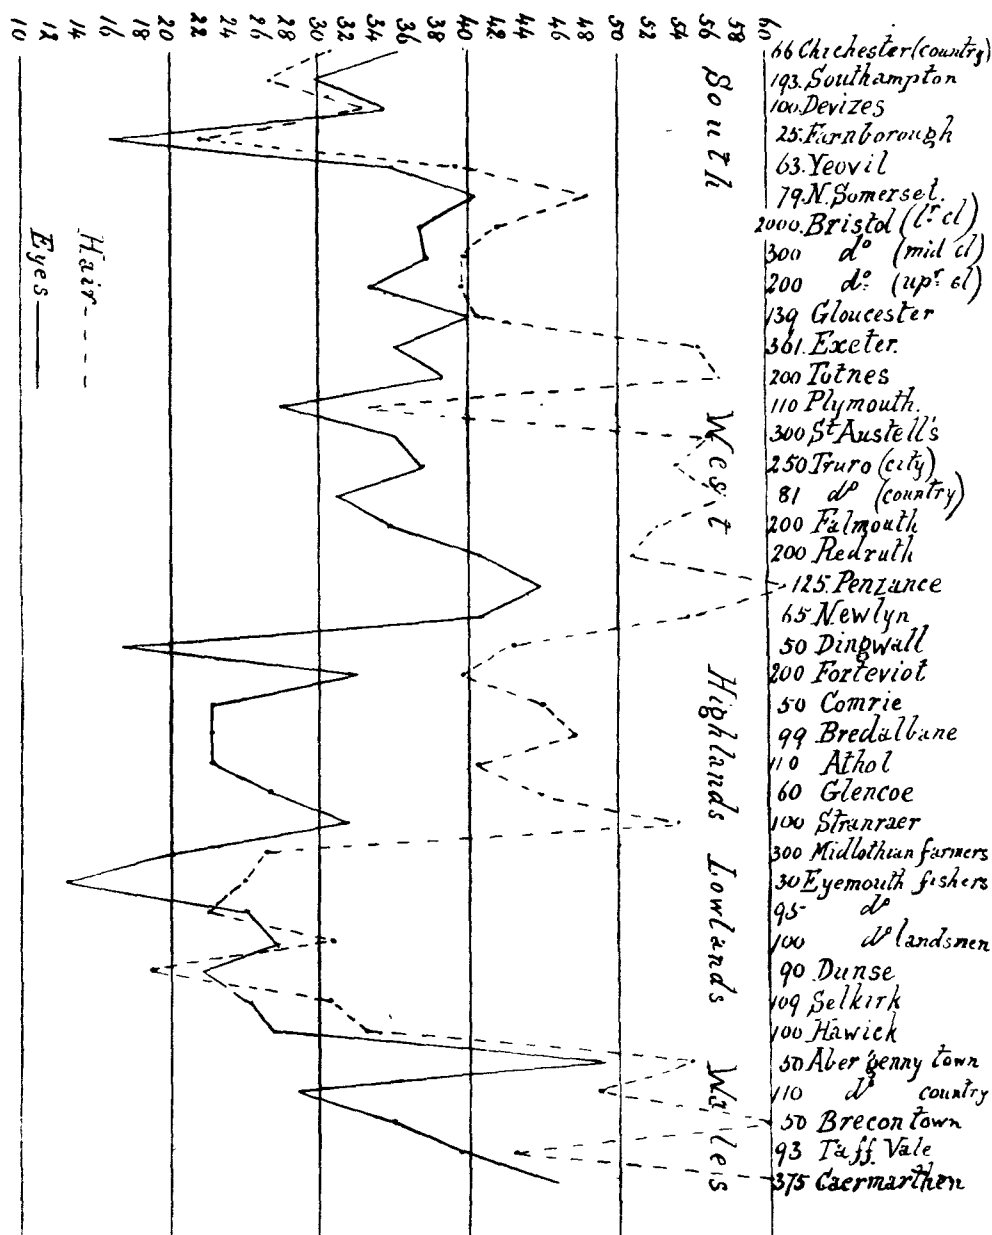 10 12 14 16 18 20 22 24 26 28 30 32 34 36 38 40 42 44 46 48 50 52 54 56 58 60
66 Chichester (country)
193. Southampton
100. Devizes
25. Farnborough
63. Yeovil
79. N. Somerset.
2000. Bristol (lr cl)
300 do (mid cl)
200 do: (upr. cl)
139 Gloucester
361. Exeter.
200 Totnes
110 Plymouth.
300 St Austell's
250 Truro (city)
81 do (country)
200 Falmouth
200 Redruth
125. Penzance
65 Newlyn
50 Dingwall
200 Forteviot
50 Comrie
99 Bredalbane
110 Athol
60 Glencoe
100 Stranraer
300 Midlothian farmers
30 Eyemouth fishers
95 do
100 do landsmen
90 Dunse
109 Selkirk
100 Hawick
50 Aber'genny town
110 do country
50 Brecon town
93 Taff Vale
375 Caermarthen
South
West
Highlands
Lowlands
Wales
Hair
Eyes